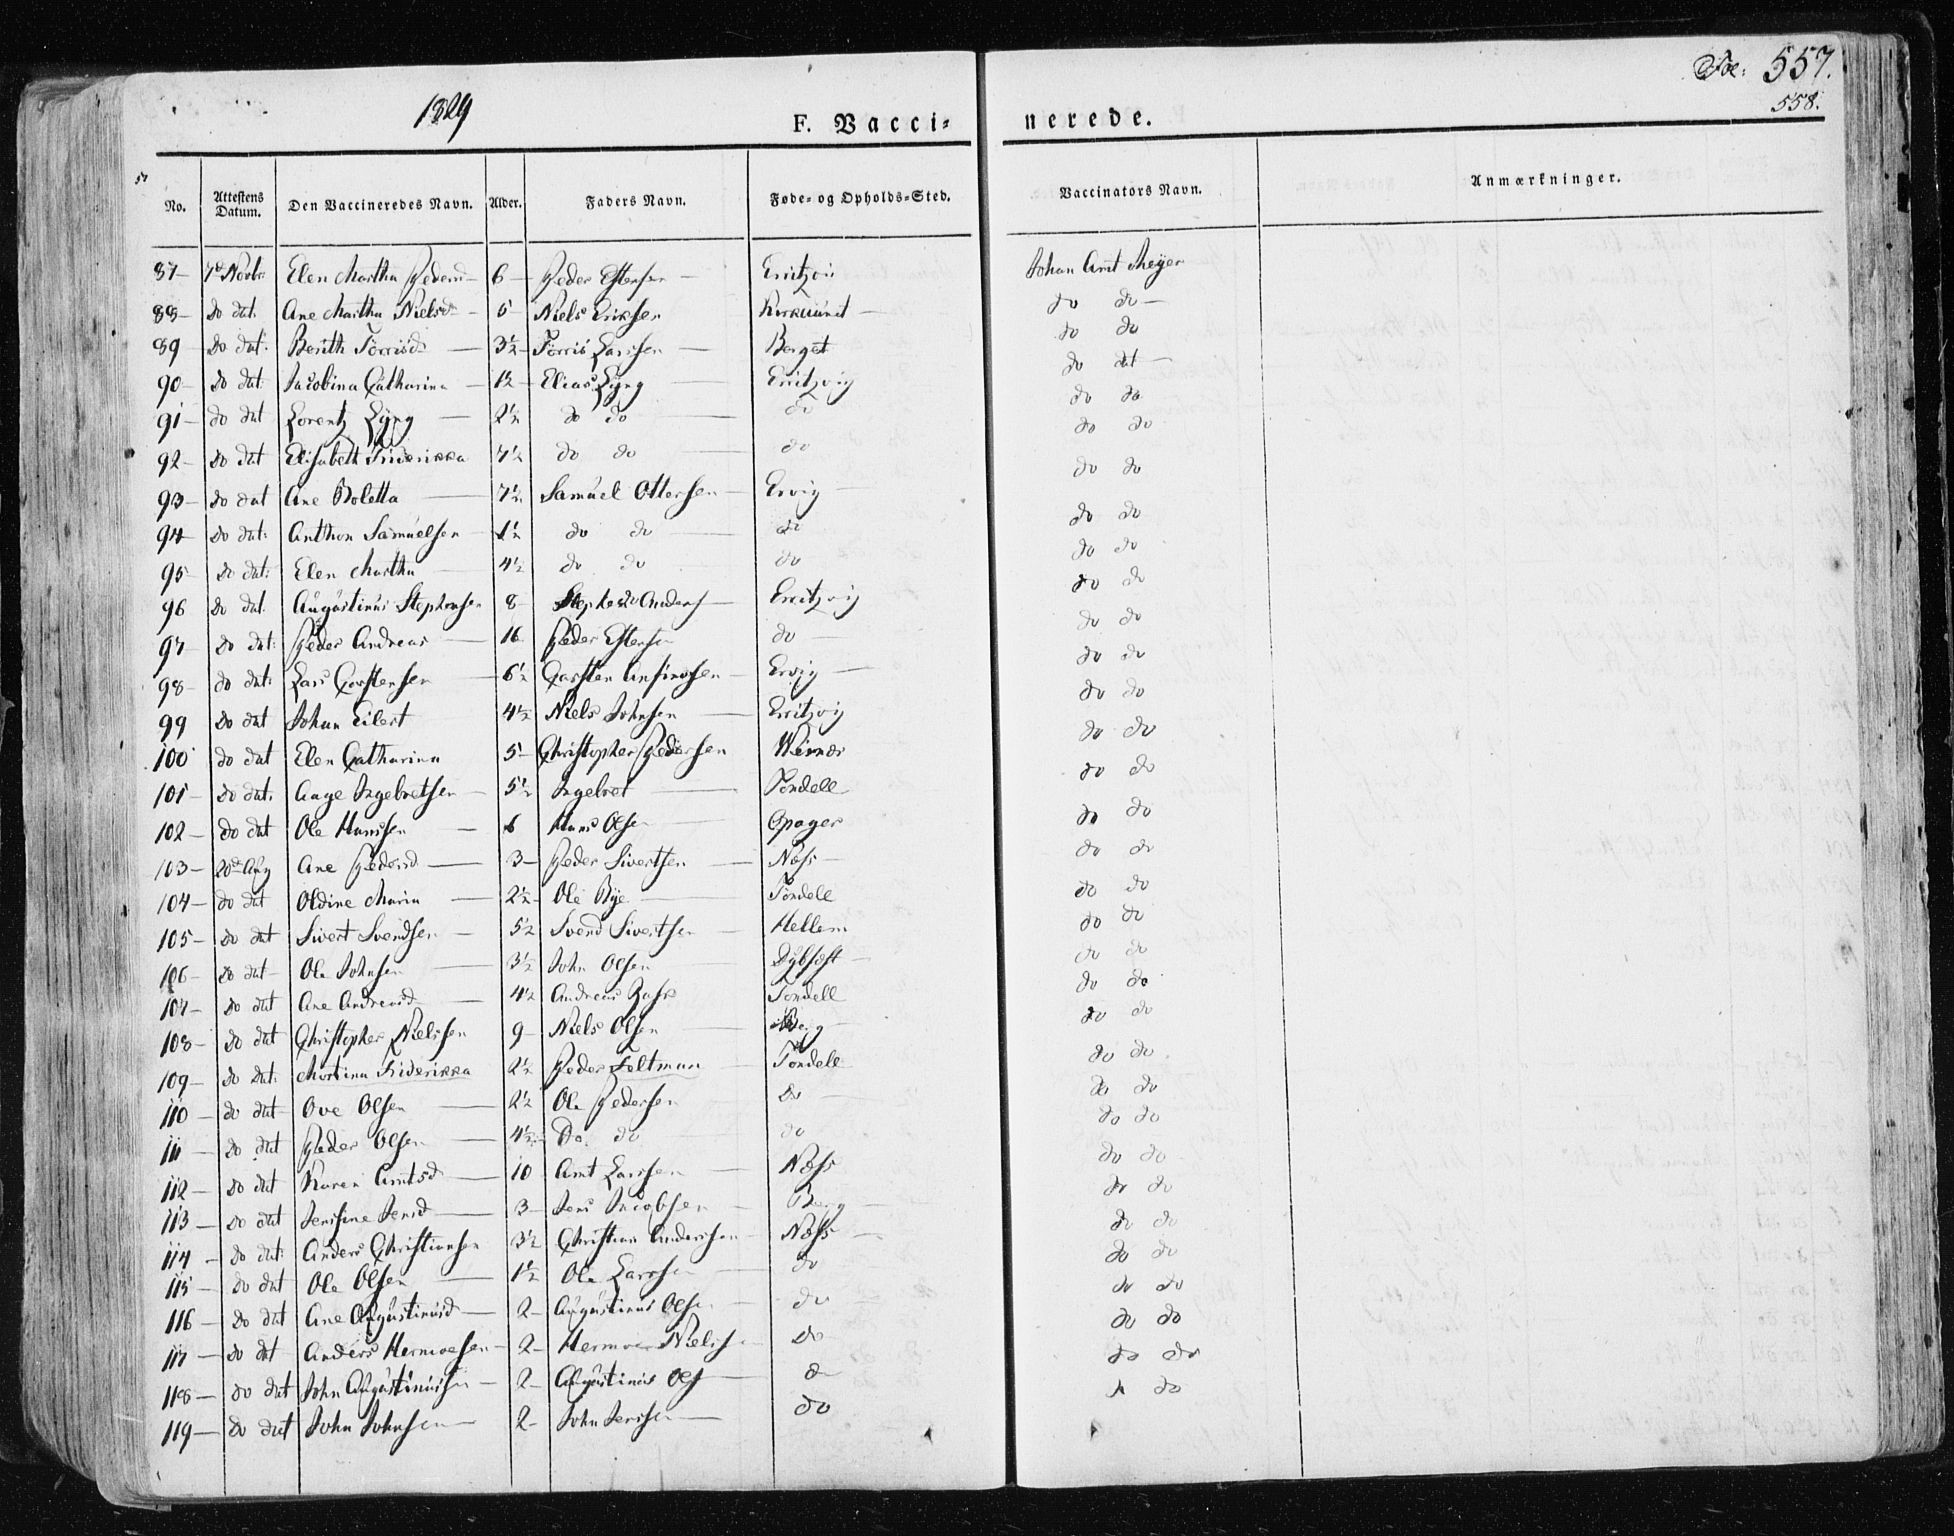 Fol: 557.
558.
1829
F. Vacci= nerede.
No. Attestens Datum. Den Vaccineredes Navn. Alder. Faders Navn. Føde= og Opholds=Sted. Vaccinators Navn. Anmærkninger.
87 7d Novbr Elen Martha Pedersd 6 Peder Estensen Johan Arnt Meyer
88 do dat: Ane Martha Nielsd 5 Niels Eriksen do do
89 do dat: Berith Törrisd 3½ Törris Larssen Berget do do
90 do dat: Jacobina Catharina 1½ Elias Lyng Erritzvig do dat
91 do dat Lorentz Lyng 2½ do do do do do
92 do dat Elisabeth Friderikka 7½ do do do do do
93 do dat Ane Boletta 7½ Samuel Ottersen Ervig do do
94 do dat: Anthon Samuelsen 1½ do do do do do
95 do dat: Elen Martha 4½ do do do do do
96 do dat: Augustinus Stephensen 8 Erritzvig do do
97 do dat: Peder Andreas 16 Peder Estensen do do do
98 do dat: Lars Carstensen 6½ Carsten Anfindsen Ervig do do
99 do dat Johan Eilert 4½ Niels Johnsen Erritzvig do do
100 do dat Elen Catharina 5 Christopher Pedersen do do
101 do dat. Aage Ingebretsen 5½ Ingebret Tondell do do
102 do dat Ole Hanssen 6 Hans Olsen Opager do do
103 20de Aug Ane Pedersd 3 Peder Sivertsen Næss do do
104 do dat Oldine Maria 2½ Ole Bye Tondell do do
105 do dat Sivert Svendsen 5½ Svend Sivertsen Hellem do do
106 do dat Ole Johnsen 3½ John Olsen do do
107 do dat Ane Andreasd 4½ Andreas Tondell do do
108 do dat Christopher Nielssen 9 Niels Olsen Berg do do
109 do dat: Martina Friderikka 2½ Peder Feltman Tondell do do
110 do dat Ove Olsen 2½ Ole Pedersen do do do
111 do dat Peder Olsen 4½ do do do do do
112 do dat Karen Arntsd 10 Arnt Larssen Næss do do
113 do dat Jensine Jensd 3 Jens Jacobsen Berg do do
114 do dat: Anders Christiansen 3½ Christian Anderssen Næss do do
115 do dat Ole Olsen 1½ Ole Larssen do do do
116 do dat Ane Augustinusd 2 Augustinus Olsen do do do
117 do dat Anders Hermoesen 2 Hermoe Nielss do do do
118 do dat John Augustinussen 2 Augustinus Ols do do do
119 do dat John Johnsen 2 John Jenssen do do